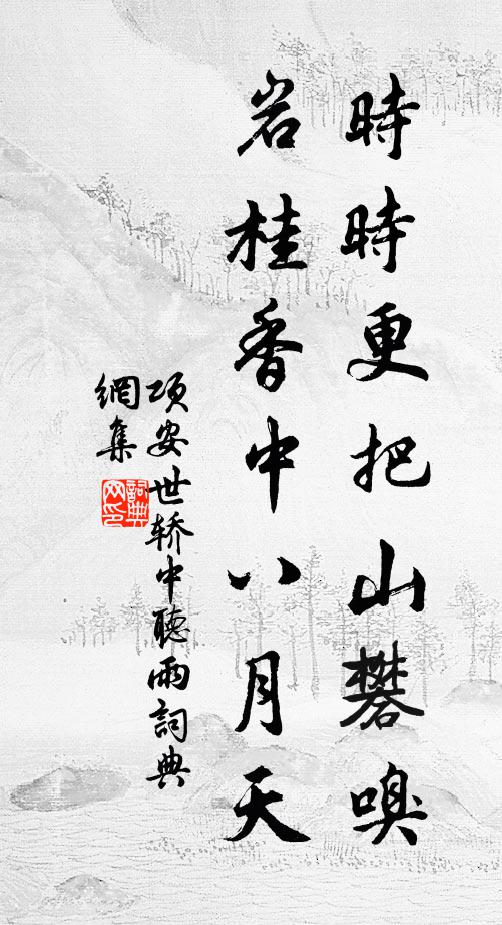 時時更把山礬嗅
岩桂香中八月天
项安世轿中聽雨詞典
網集
詞典網印